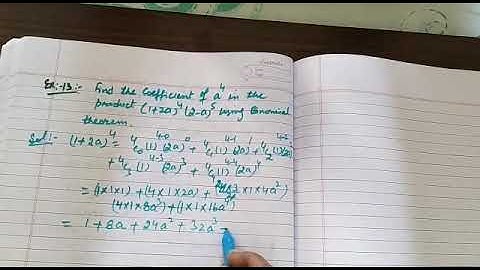 Ex:-13:- Find the Coefficient of a⁴ in the
product (1+2a)⁴(2-a)⁵ using Binomial
theorem.
Sol:- (1+2a)⁴ = ⁴C₀(1)⁴⁻⁰(2a)⁰ + ⁴C₁(1)⁴⁻¹(2a)¹ + ⁴C₂(1)⁴⁻²(2a)²
+ ⁴C₃(1)⁴⁻³(2a)³ + ⁴C₄(1)⁴⁻⁴(2a)⁴
= (1×1×1) + (4×1×2a) + ( ×1×4a²)
(4×1×8a³) + (1×1×16a⁴)
= 1 + 8a + 24a² + 32a³